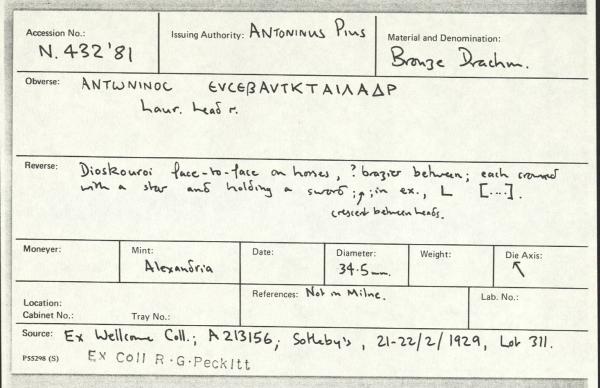 Accession No.: N. 432'81
Issuing Authority: Antoninus Pius
Material and Denomination: Bronze Drachm.
Obverse: ΑΝΤωΝΙΝΟC ЄVCЄβΑVΤΚΤΑΙΛΑΔΡ
Laur. head r.
Reverse: Dioskouroi face-to-face on horses, ? brazier between; each crowned
with a star and holding a sword; ; in ex., L [....].
crescent between heads.
Moneyer:
Mint: Alexandria
Date:
Diameter: 34.5 mm.
Weight:
Die Axis: ↖
Location:
Cabinet No.: Tray No.:
References: Not in Milne.
Lab. No.:
Source: Ex Wellcome Coll.; A213156; Sotheby's, 21-22/2/1929, Lot 311.
P55298 (S) Ex Coll R.G.Peckitt